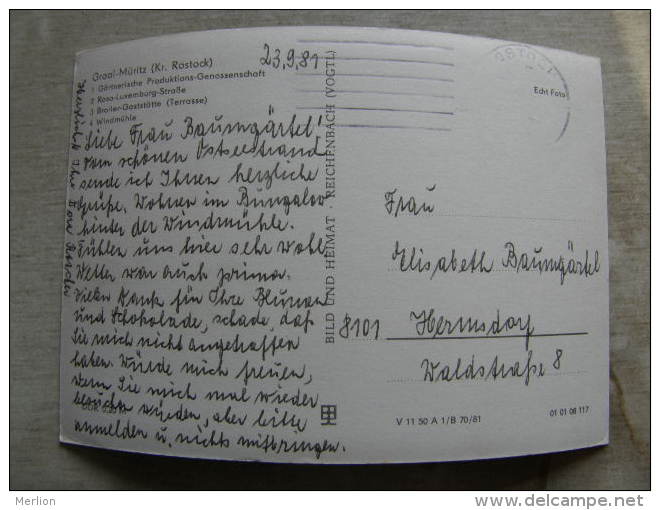 Graal-Müritz (Kr. Rostock)
1 Gärtnerische Produktions-Genossenschaft
2 Rosa-Luxemburg-Straße
3 Broiler-Gaststätte (Terrasse)
4 Windmühle
23.9.81
Liebe Frau Baumgärtel!
Vom schönen Ostseestrand
sende ich Ihnen herzliche
Grüße. Wohnen im Bungalow
hinter der Windmühle.
Fühlen uns hier sehr wohl
Wetter war auch prima.
Vielen Dank für Ihre Blumen
und Schokolade, schade, daß
Sie mich nicht angetroffen
haben. Würde mich freuen,
wenn Sie mich mal wieder
besuchen würden, aber bitte
anmelden u. nichts mitbringen.
Herzlichst Ihre
BILD UND HEIMAT · REICHENBACH (VOGTL)
Echt Foto
Frau
Elisabeth Baumgärtel
8101 Hermsdorf
Waldstraße 8
V 11 50 A 1/B 70/81
01 01 06 117
Merlion
www.delcampe.net